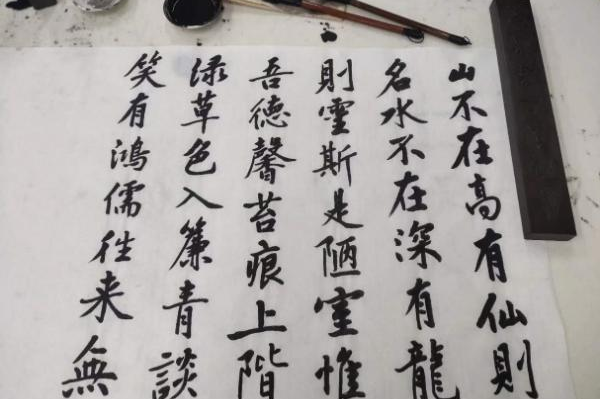 山不在高有仙則
名水不在深有龍
則靈斯是陋室惟
吾德馨苔痕上階
绿草色入簾青談
笑有鴻儒往来無